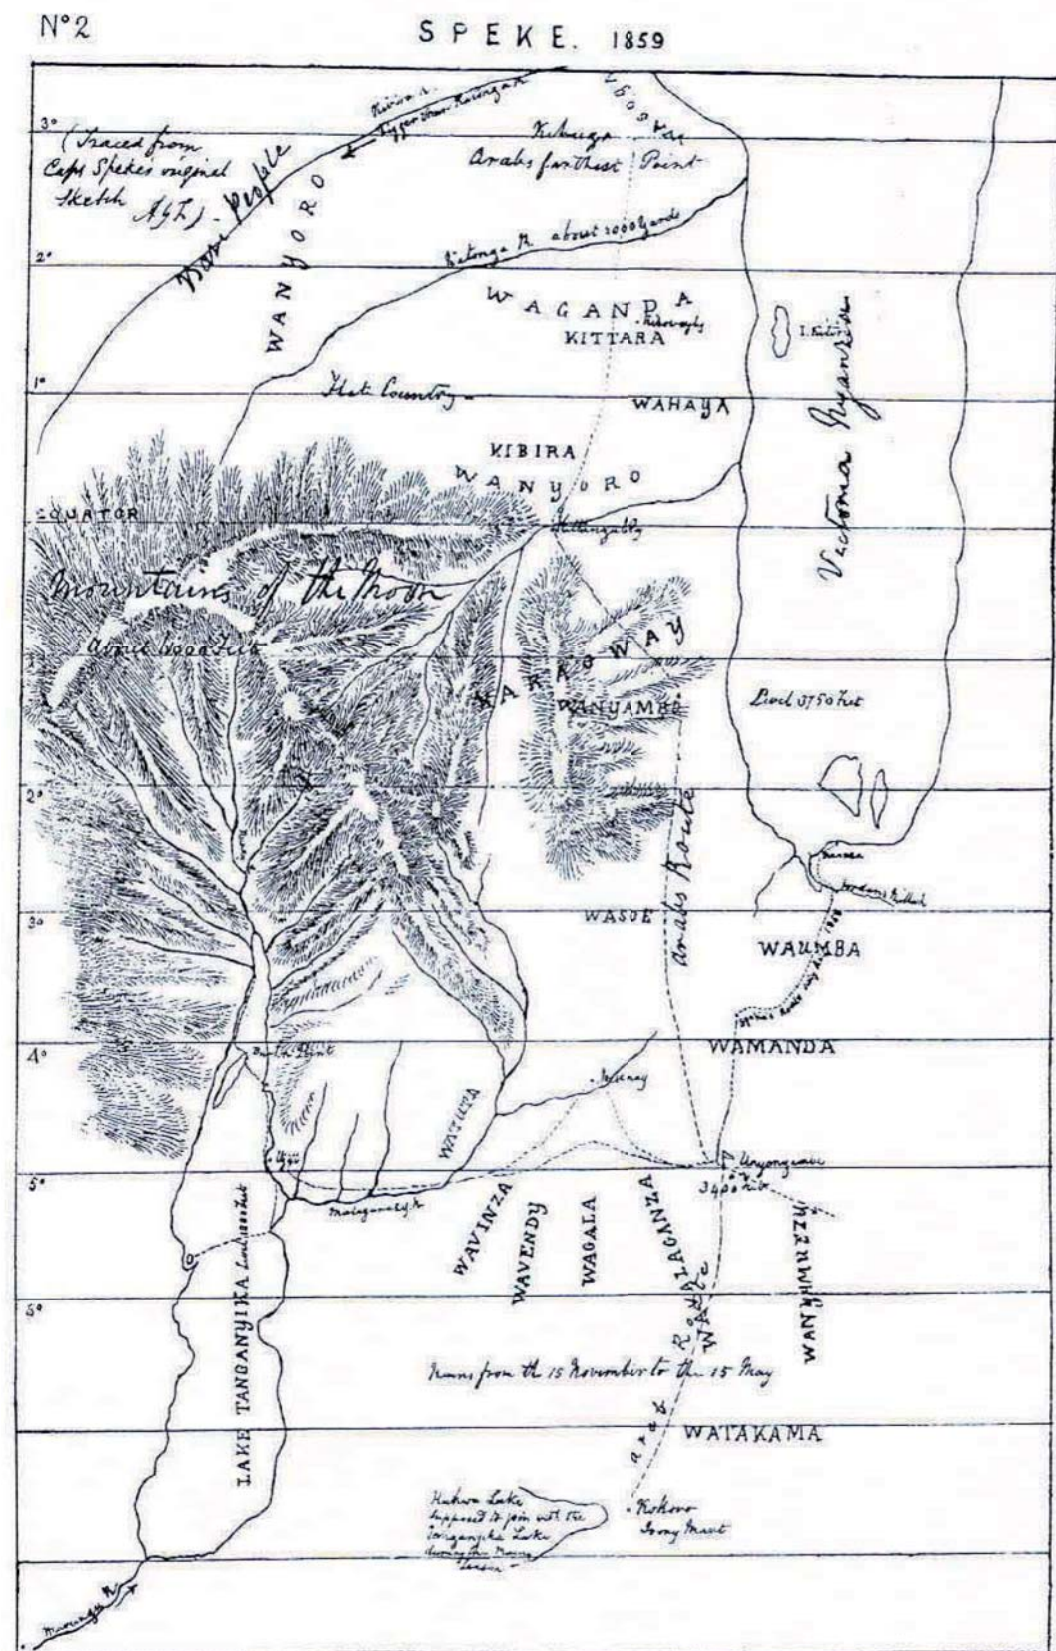 Nº 2
SPEKE. 1859
3°
(Traced from
Capt Spekes original
Sketch
Kivira R.
Arabs farthest Point
Bari People
WANYORO
2°
Kitonga R. about 2000 yards
WAGANDA
KITTARA
Victoria Nyanza
1°
Flat Country
WAHAYA
KIBIRA
WANYORO
EQUATOR
Kitangulé R
Mountains of the Moon
about 6000 feet
KARAGWAY
WANYAMBO
1
Level 3750 feet
2°
Arabs Route
3°
WASOE
WAUMBA
4°
WAMANDA
WATUTA
Ujiji
5°
Unyanyembe
3400 feet
Malagarazi R
WAVINZA
WAVENDY
WAGALA
WAGALAGANZA
WANYAMUEZI
LAKE TANGANYIKA Level 1800 feet
6°
Rains from the 15 November to the 15 May
Arab Route
WATAKAMA
Rukwa Lake
supposed to join with the
Tanganyika Lake
during the Rainy
Season
Kokoro
Ivory Mart
Marungu R